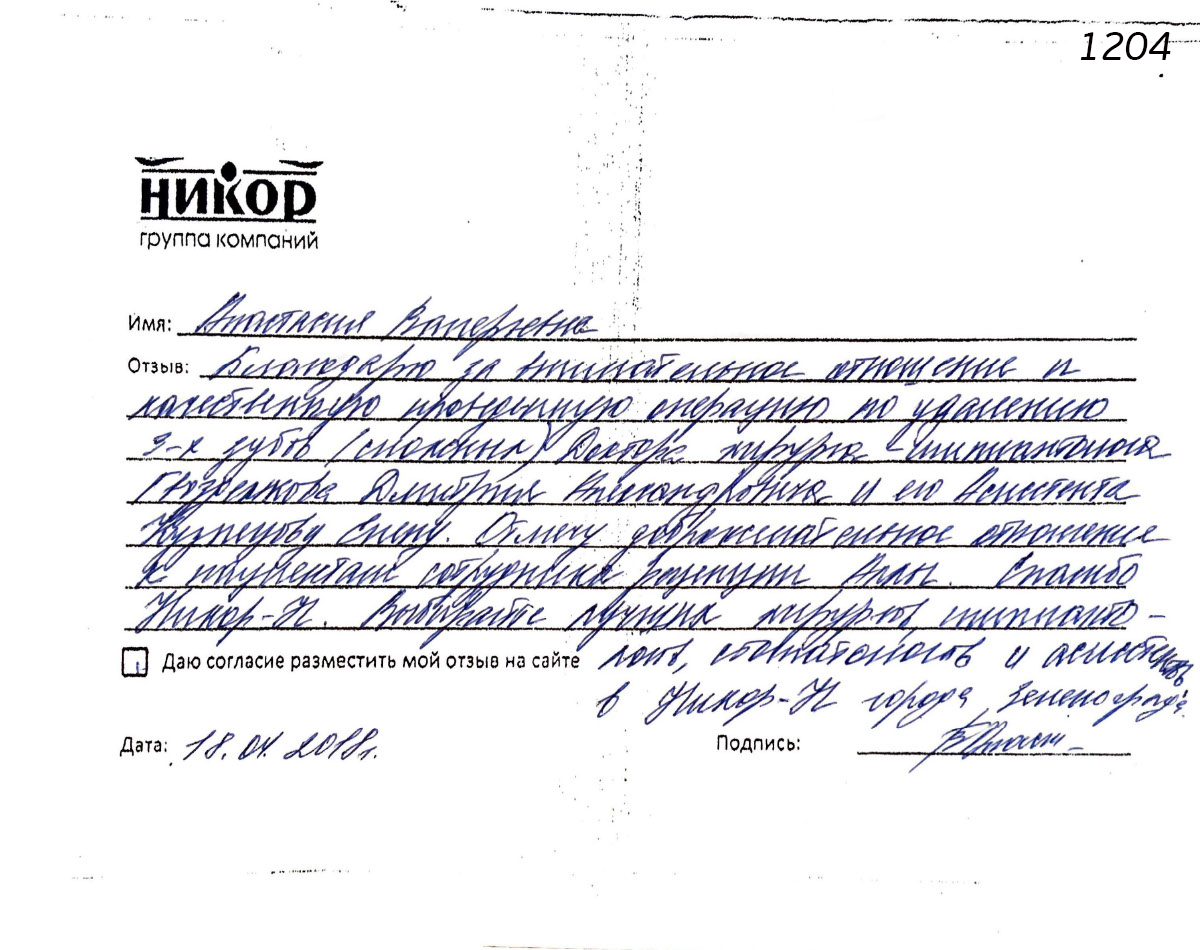 1204
НИКОР
группа компаний
Имя: Анастасия Валерьевна
Отзыв: Благодарю за внимательное отношение и
качественную проведенную операцию по удалению
3-х зубов (сложных) Доктора хирурга - имплантолога
Дмитрия Александровича и его Ассистента
Кузнецову Елену. Отмечу доброжелательное отношение
к пациентам сотрудника рецепции Аллы. Спасибо
Никор-Н. Выбирайте лучших хирургов, импланто-
логов, стоматологов и ассистентов
в Никор-Н города Зеленограда.
Даю согласие разместить мой отзыв на сайте
Дата: 18.04.2018г.
Подпись: